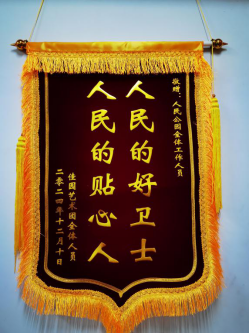 敬赠：人民公园全体工作人员
人民的好卫士
人民的贴心人
佳园艺术团全体人员
二零二四年十二月十日